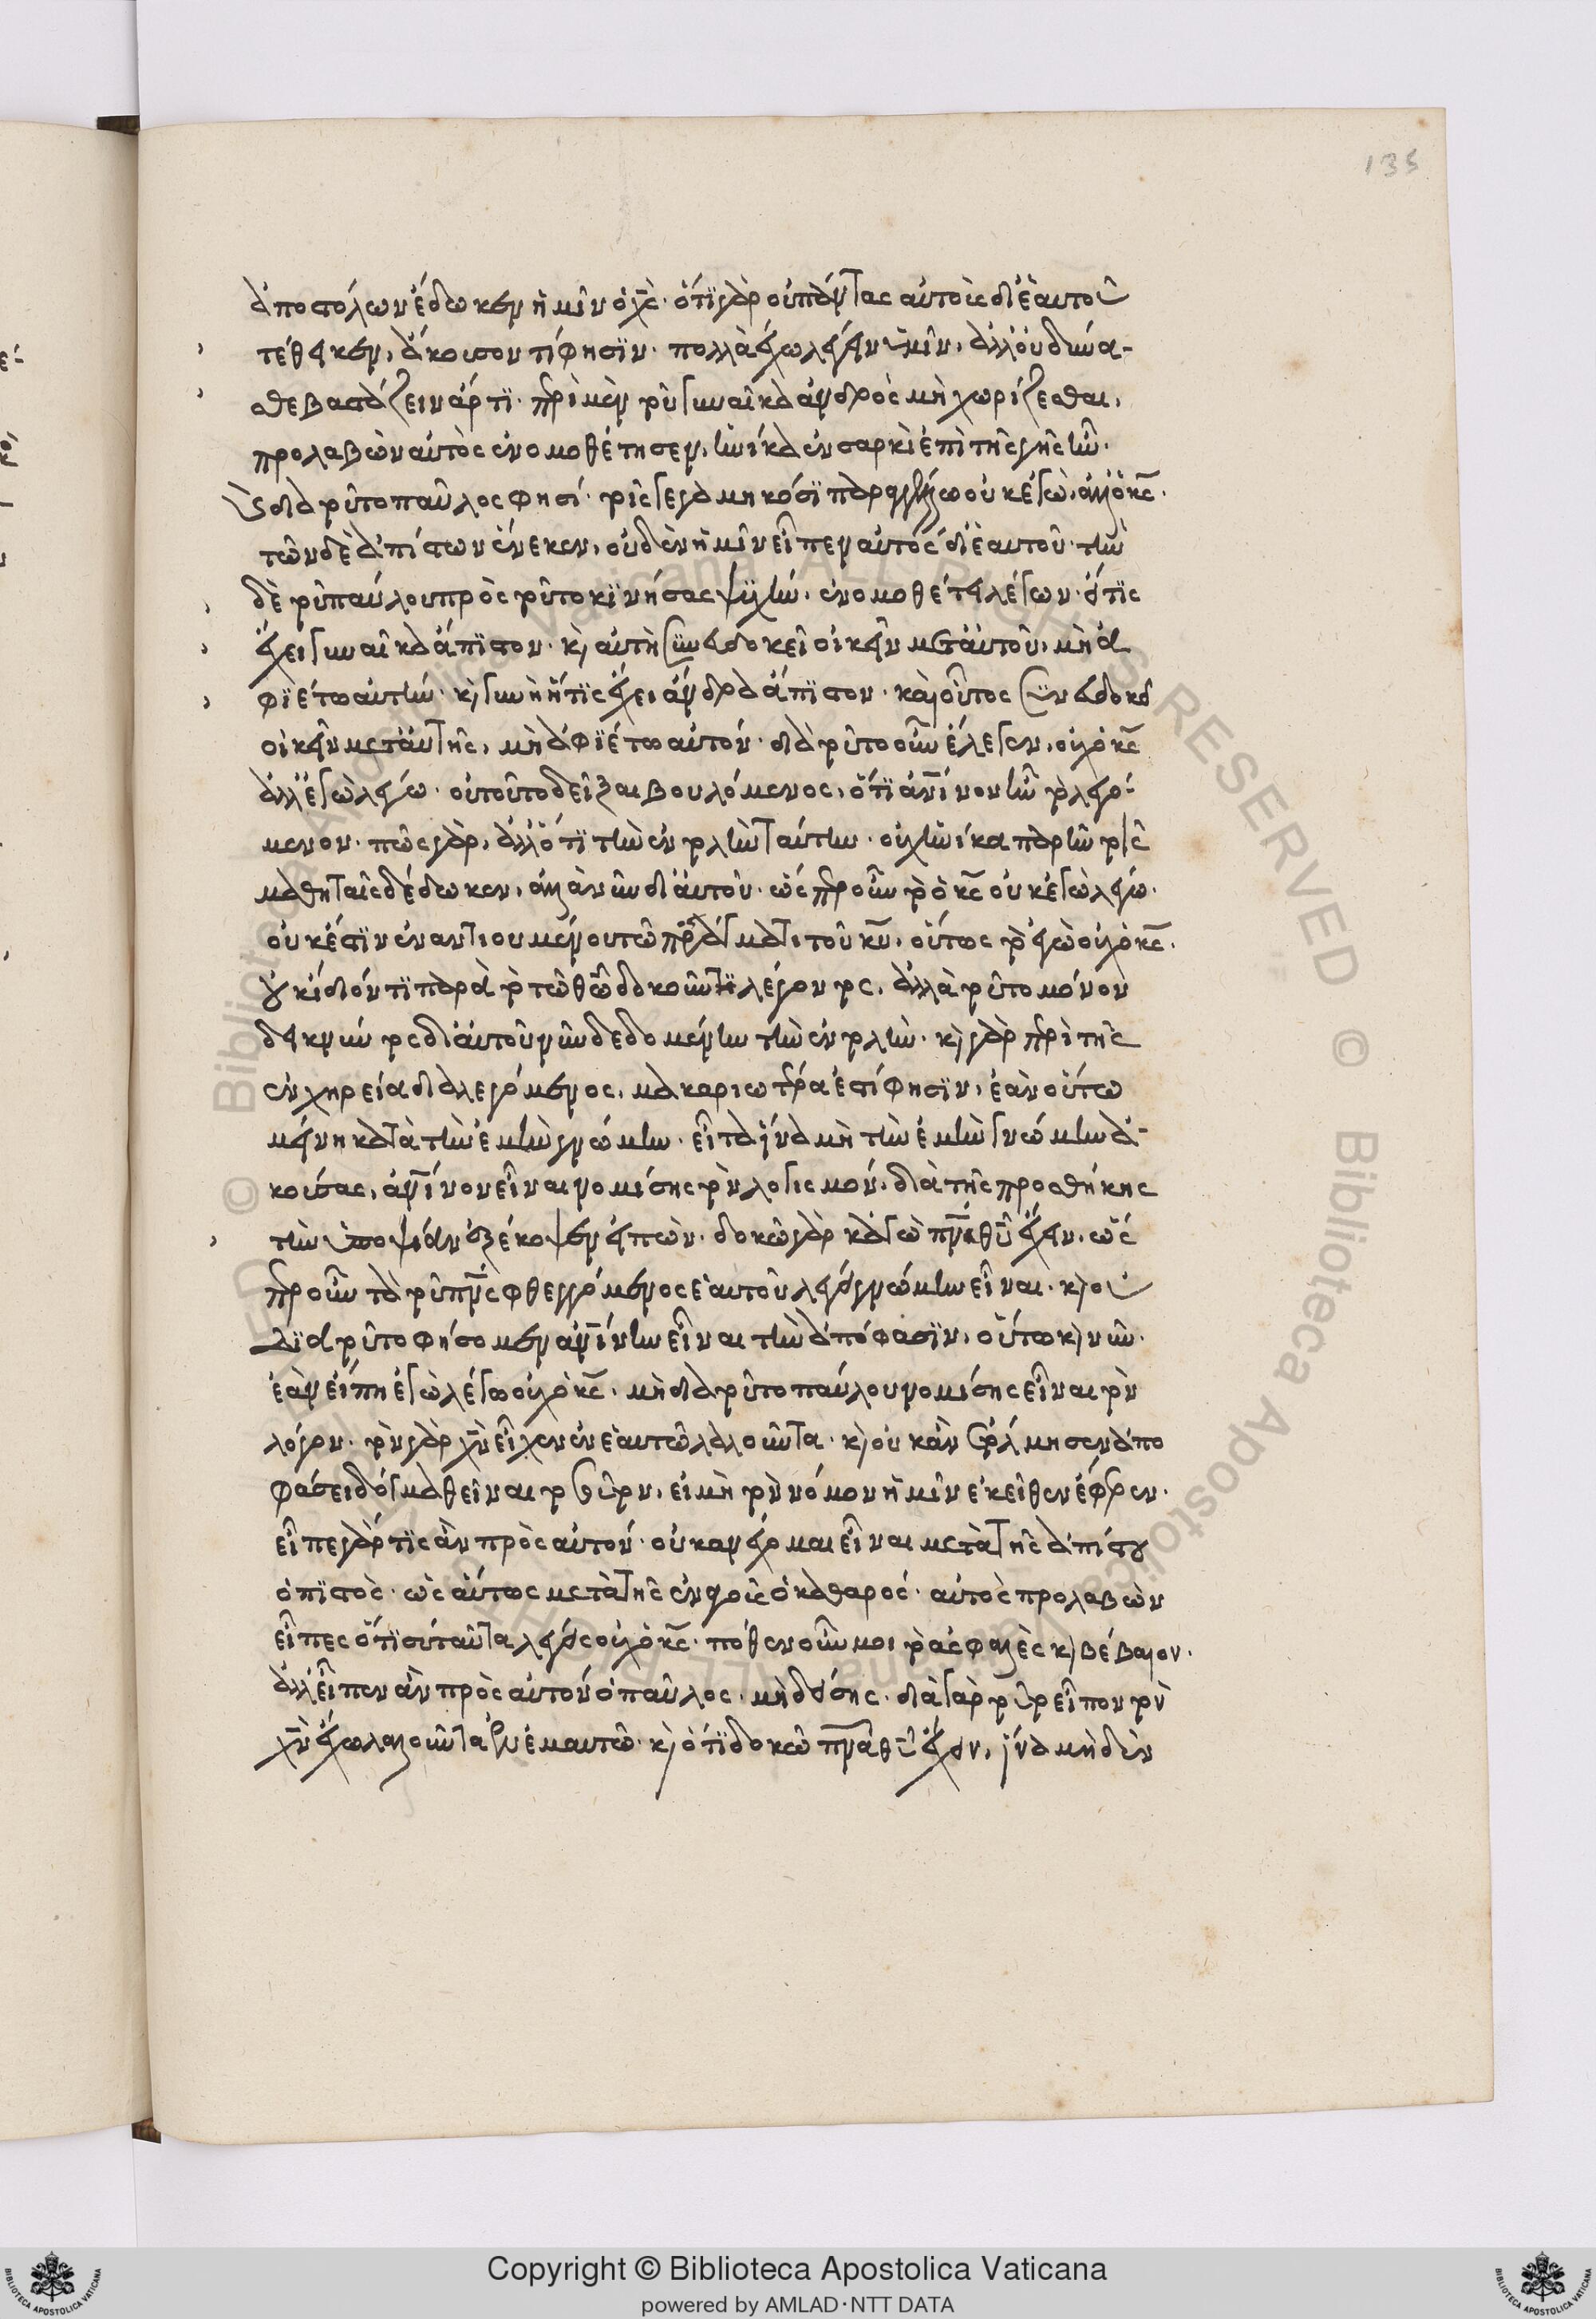 ἀποστόλων ἔδωκεν ἡμῖν ὁ χς· ὅτι γὰρ οὐ πάντας αὐτὸς δι' ἑαυτοῦ
τέθεικεν, ἄκουσον τί φησϊν· πολλὰ ἔχω λέγειν ὑμῖν, ἀλλ' οὐ δύνα-
σθε βαστάζειν ἄρτι· περὶ μὲν τοῦ γυναῖκα ἀνδρὸς μὴ χωρίζεσθαι,
προλαβὼν αὐτὸς ἐνομοθέτησεν, ἡνίκα ἐν σαρκὶ ἐπὶ τῆς γῆς ἦν·
διὰ τοῦτο παῦλος φησί· τοῖς γεγαμηκόσι παραγγέλλω οὐκ ἐγὼ, ἀλλ' ὁ κς·
τῶν δὲ ἀπίστων ἕνεκεν, οὐδὲν ἡμῖν εἶπεν αὐτὸς δι' ἑαυτοῦ· τὴν
δὲ τοῦ παύλου πρὸς τοῦτο κινήσας ψυχὴν, ἐνομοθέτει λέγων· ὅστις
ἔχει γυναῖκα ἄπιστον· καὶ αὐτὴ συνευδοκεῖ οἰκεῖν μετ' αὐτοῦ, μὴ ἀ
φιέτω αὐτήν· καὶ γυνὴ ἥτις ἔχει ἄνδρα ἄπιστον· καὶ οὗτος συνευδοκεῖ
οἰκεῖν μετ' αὐτῆς, μὴ ἀφιέτω αὐτόν· διὰ τοῦτο οὖν ἔλεγεν, οὐχ ὁ κς
ἀλλ' ἐγὼ λέγω· οὐ τοῦτο δεῖξαι βουλόμενος, ὅτι ανινον ἦν τὸ λεγό-
μενον· πῶς γὰρ, ἀλλ' ὅτι τὴν ἐντολὴν ταύτην· οὐχ ἡνίκα παρῆν τοῖς
μαθηταῖς δέδωκεν, ἀλλὰ νῦν δι' αὐτοῦ· ὥσπερ οὖν τὸ ὁ κς οὐκ ἐγὼ λέγω·
οὐκ ἔστιν ἐναντιουμένου τῷ προστάγματι τοῦ κυ, οὕτως τὸ ἐγὼ οὐχ ὁ κς·
οὐκ ἴδιόν τι παρὰ τὸ τῷ θω δοκοῦν τι λέγοντος, ἀλλὰ τοῦτο μόνον
δεικνύντος δι' αὐτοῦ νῦν δεδομένην τὴν ἐντολὴν· καὶ γὰρ περὶ τῆς
ἐν χηρεία διαλεγόμενος, μακαριωτέρα ἐστί φησιν, ἐὰν οὕτω
μείνη κατὰ τὴν ἐμὴν γνώμην· εἶτα ἵνα μὴ τὴν ἐμὴν γνώμην ἀ-
κούσας, ανινον εἶναι νομίσης τὸν λογισμόν, διὰ τῆς προσθήκης
τὴν ὑποψίαν ἐξέκοψεν εἰπών· δοκῶ γὰρ κἀγὼ πνα θυ ἔχειν, ὥσ
περ οὖν τὰ τοῦ πνς φθεγγόμενος ἑαυτοῦ λέγει γνώμην εἶναι· καὶ οὐ
διὰ τοῦτο φήσομεν ανινην εἶναι τὴν ἀπόφασιν, οὕτω καὶ νῦν·
ἐὰν εἴπη ἐγὼ λέγω οὐχ ὁ κς, μὴ διὰ τοῦτο παύλου νομίσης εἶναι τὸν
λόγον· τὸν γὰρ χν εἶχεν ἐν ἑαυτῷ λαλοῦντα· καὶ οὐκ ἂν ἐτόλμησεν ἀπο
φάσει δόγμα θεῖναι τοσοῦτον, εἰ μὴ τὸν νόμον ἡμῖν ἐκεῖθεν ἔφερεν·
εἶπε γὰρ ἄν τις πρὸς αὐτόν· οὐκ ἀνέχομαι εἶναι μετὰ τῆς ἀπίστου
ὁ πιστὸς· ὡσαύτως μετὰ τῆς ἐναγοῦς ὁ καθαρός· αὐτὸς προλαβὼν
εἶπες ὅτι σὺ ταῦτα λέγεις οὐχ ὁ κς· πόθεν οὖν μοι τὸ ἀσφαλὲς καὶ βέβαιον·
ἀλλ' εἶπεν ἂν πρὸς αὐτὸν ὁ παῦλος, μὴ δείσης· διὰ γὰρ τοῦτο εἶπον τὸν
χν ἔχω λαλοῦντα ἐν ἐμαυτῷ· καὶ ὅτι δοκῶ πνα θυ ἔχειν, ἵνα μηδὲν